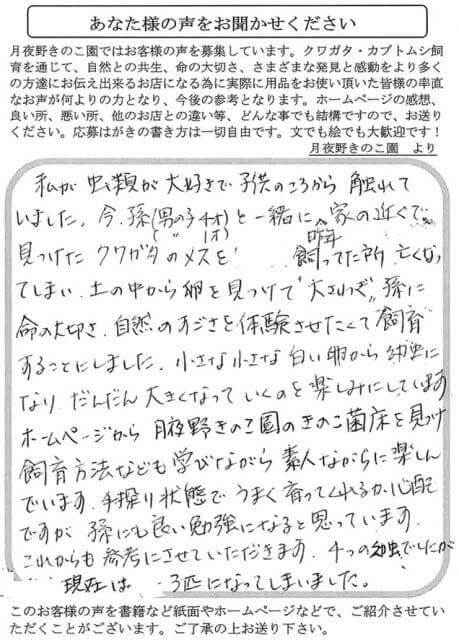 あなた様の声をお聞かせください
月夜野きのこ園ではお客様の声を募集しています。クワガタ・カブトムシ飼
育を通じて、自然との共生、命の大切さ、さまざまな発見と感動をより多く
の方達にお伝え出来るお店になる為に実際に用品をお使い頂いた皆様の率直
なお声が何よりの力となり、今後の参考となります。ホームページの感想、
良い所、悪い所、他のお店との違い等、どんな事でも結構ですので、お送り
ください。応募はがきの書き方は一切自由です。文でも絵でも大歓迎です！
月夜野きのこ園　より
私が虫類が大好きで子供のころから触れて
いました。今、孫(男の子4才)と一緒に家の近くで
(〃 1才)
昨年
見つけたクワガタのメスを 飼ってた所、亡くなっ
てしまい、土の中から卵を見つけて"大さわぎ"孫に
命の大切さ、自然のすごさを体験させたくて飼育
することにしました。小さな小さな白い卵から幼虫に
なり、だんだん大きくなっていくのを楽しみにしています
ホームページから月夜野きのこ園のきのこ菌床を見つけ
飼育方法なども学びながら素人ながらに楽しん
でいます。手探り状態でうまく育ってくれるか心配
ですが孫にも良い勉強になると思っています。
これからも参考にさせていただきます。4つの幼虫でしたが
現在は 3匹になってしまいました。
このお客様の声を書籍など紙面やホームページなどで、ご紹介させてい
ただくことがございます。ご了承の上お送り下さい。